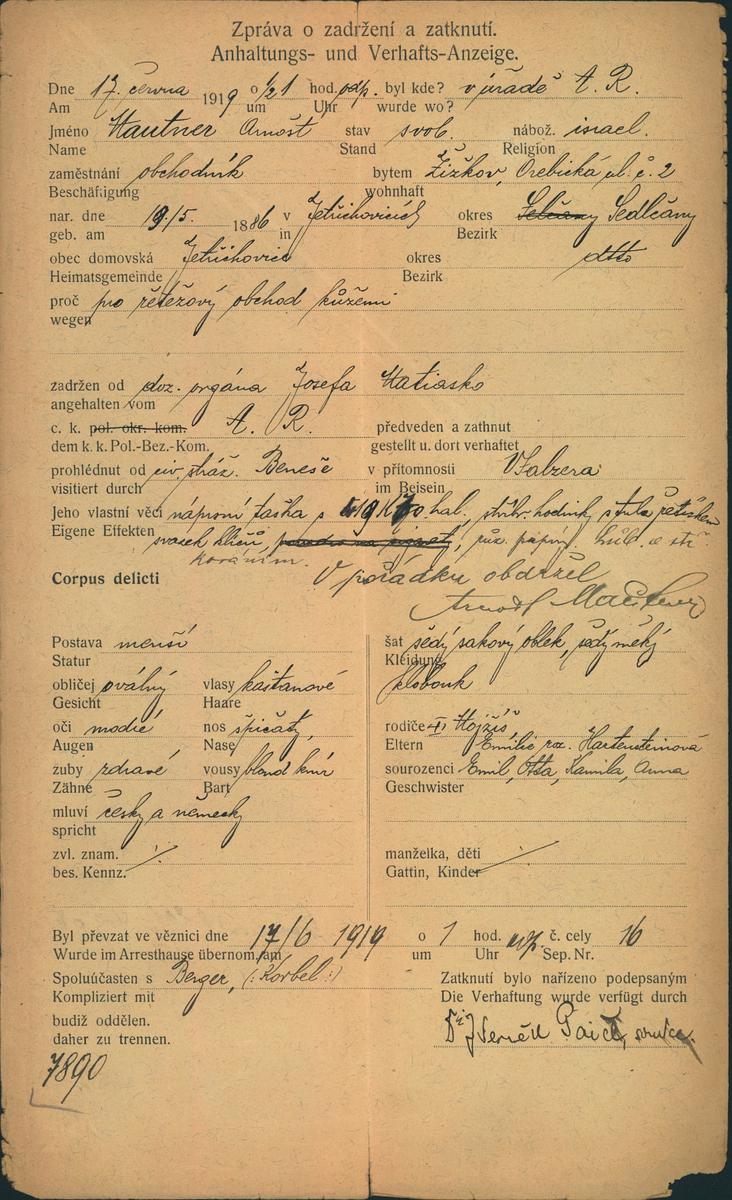 Zpráva o zadržení a zatknutí.
Anhaltungs- und Verhafts-Anzeige.
Dne 17. června 1919 o ½1 hod. odp. byl kde? v úřadě A. R.
Am um Uhr wurde wo?
Jméno Hautner Arnošt stav svob. nábož. israel.
Name Stand Religion
zaměstnání obchodník bytem Žižkov, Orebická ul. č. 2
Beschäftigung wohnhaft
nar. dne 19/5. 1886 v Jetřichovicích okres Selčany Sedlčany
geb. am in Bezirk
obec domovská Jetřichovice okres dtto
Heimatsgemeinde Bezirk
proč pro řetězový obchod kůžemi
wegen
zadržen od doz. orgána Josefa Matiasko
angehalten vom
c. k. pol. okr. kom. A. R. předveden a zathnut
dem k. k. Pol.-Bez.-Kom. gestellt u. dort verhaftet
prohlédnut od civ. stráž. Beneše v přítomnosti Valzera
visitiert durch im Beisein
Jeho vlastní věci náprsní taška s K 70 hal., stříbr. hodinky s
Eigene Effekten
svazek klíčů, růz. papíry, hůl. a
Corpus delicti V pořádku obdržel
Postava menší šat šedý sakový oblek, šedý měký
Statur Kleidung
obličej oválný vlasy kaštanové klobouk
Gesicht Haare
oči modré nos špičatý, rodiče Mojžíš
Augen Nase Eltern Emilie roz. Hartensteinová
zuby zdravé vousy blond knír sourozenci Emil, Otta, Kamila, Anna
Zähne Bart Geschwister
mluví česky a německy
spricht
zvl. znam. ·/· manželka, děti ·/·
bes. Kennz. Gattin, Kinder
Byl převzat ve věznici dne 17/6 1919 o 1 hod. odp. č. cely 16
Wurde im Arresthause übernom. am um Uhr Sep. Nr.
Spoluúčasten s Berger, (: Korbel :) Zatknutí bylo nařízeno podepsaným
Kompliziert mit Die Verhaftung wurde verfügt durch
budiž oddělen.
daher zu trennen.
7890